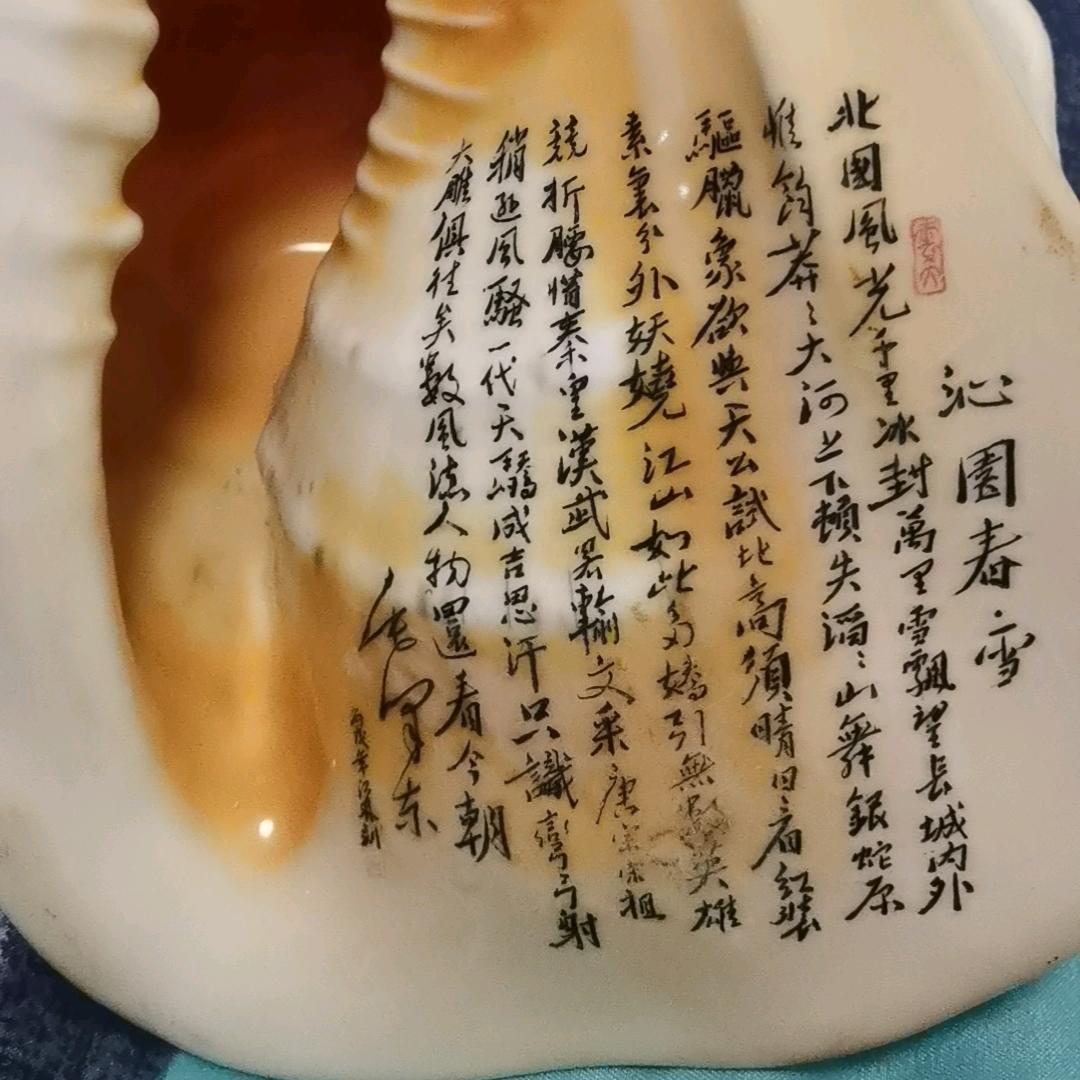 沁園春·雪
北國風光千里冰封萬里雪飄望長城内外
惟餘莽〻大河上下頓失滔〻山舞銀蛇原
驅臘象欲與天公試比高須晴日看紅裝
素裹分外妖嬈江山如此多嬌引無數英雄
競折腰惜秦皇漢武畧輸文采唐宗宋祖
稍遜風騷一代天驕成吉思汗只識彎弓射
大雕俱往矣數風流人物還看今朝
毛澤東